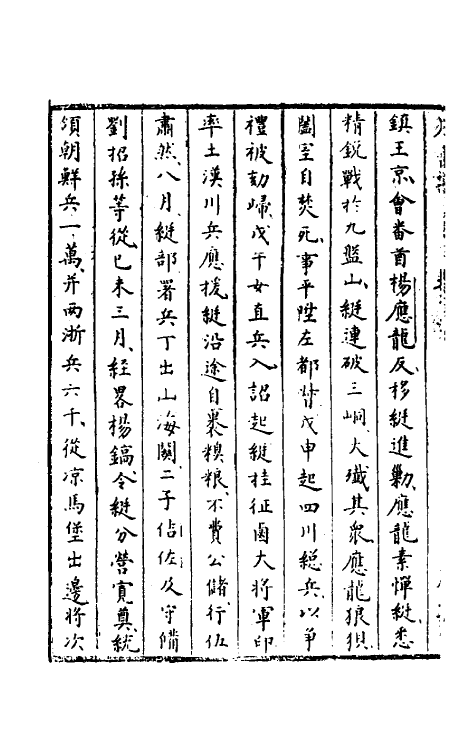 鎮王京會畨酋楊應龍反移綎進勦應龍素憚綎悉
精銳戰扵九盤山綎連破三峒大殱其衆應龍狼狽
闔室自焚死事平陞左都督戊申起四川總兵以爭
禮被劾歸戊午女直兵入詔起綎挂征虜大將軍印
率土漢川兵應援綎沿途自裹糗粮不費公儲行伍
肅然八月綎部署兵丁出山海關二子佸佐及守備
劉招孫等從已未三月經畧楊鎬令綎分營寛奠統
領朝鮮兵一萬并兩浙兵六千從凉馬堡出邊將次